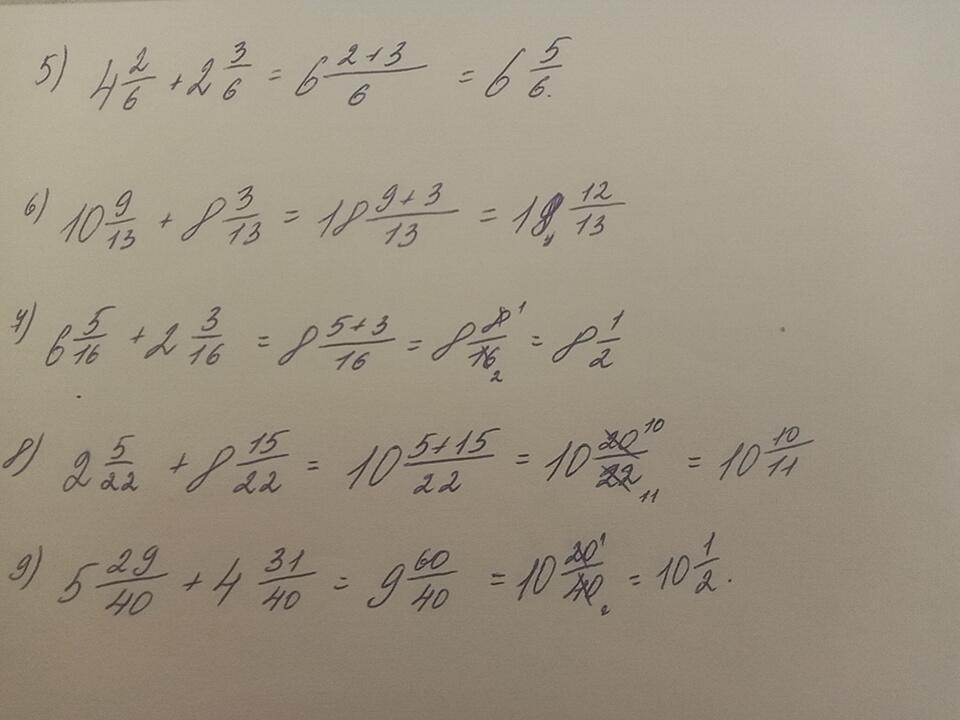 5) 4 2/6 + 2 3/6 = 6 (2+3)/6 = 6 5/6.
6) 10 9/13 + 8 3/13 = 18 (9+3)/13 = 18 12/13
7) 6 5/16 + 2 3/16 = 8 (5+3)/16 = 8 8/16 1 2 = 8 1/2
8) 2 5/22 + 8 15/22 = 10 (5+15)/22 = 10 20/22 10 11 = 10 10/11
9) 5 29/40 + 4 31/40 = 9 60/40 = 10 20/40 1 2 = 10 1/2.